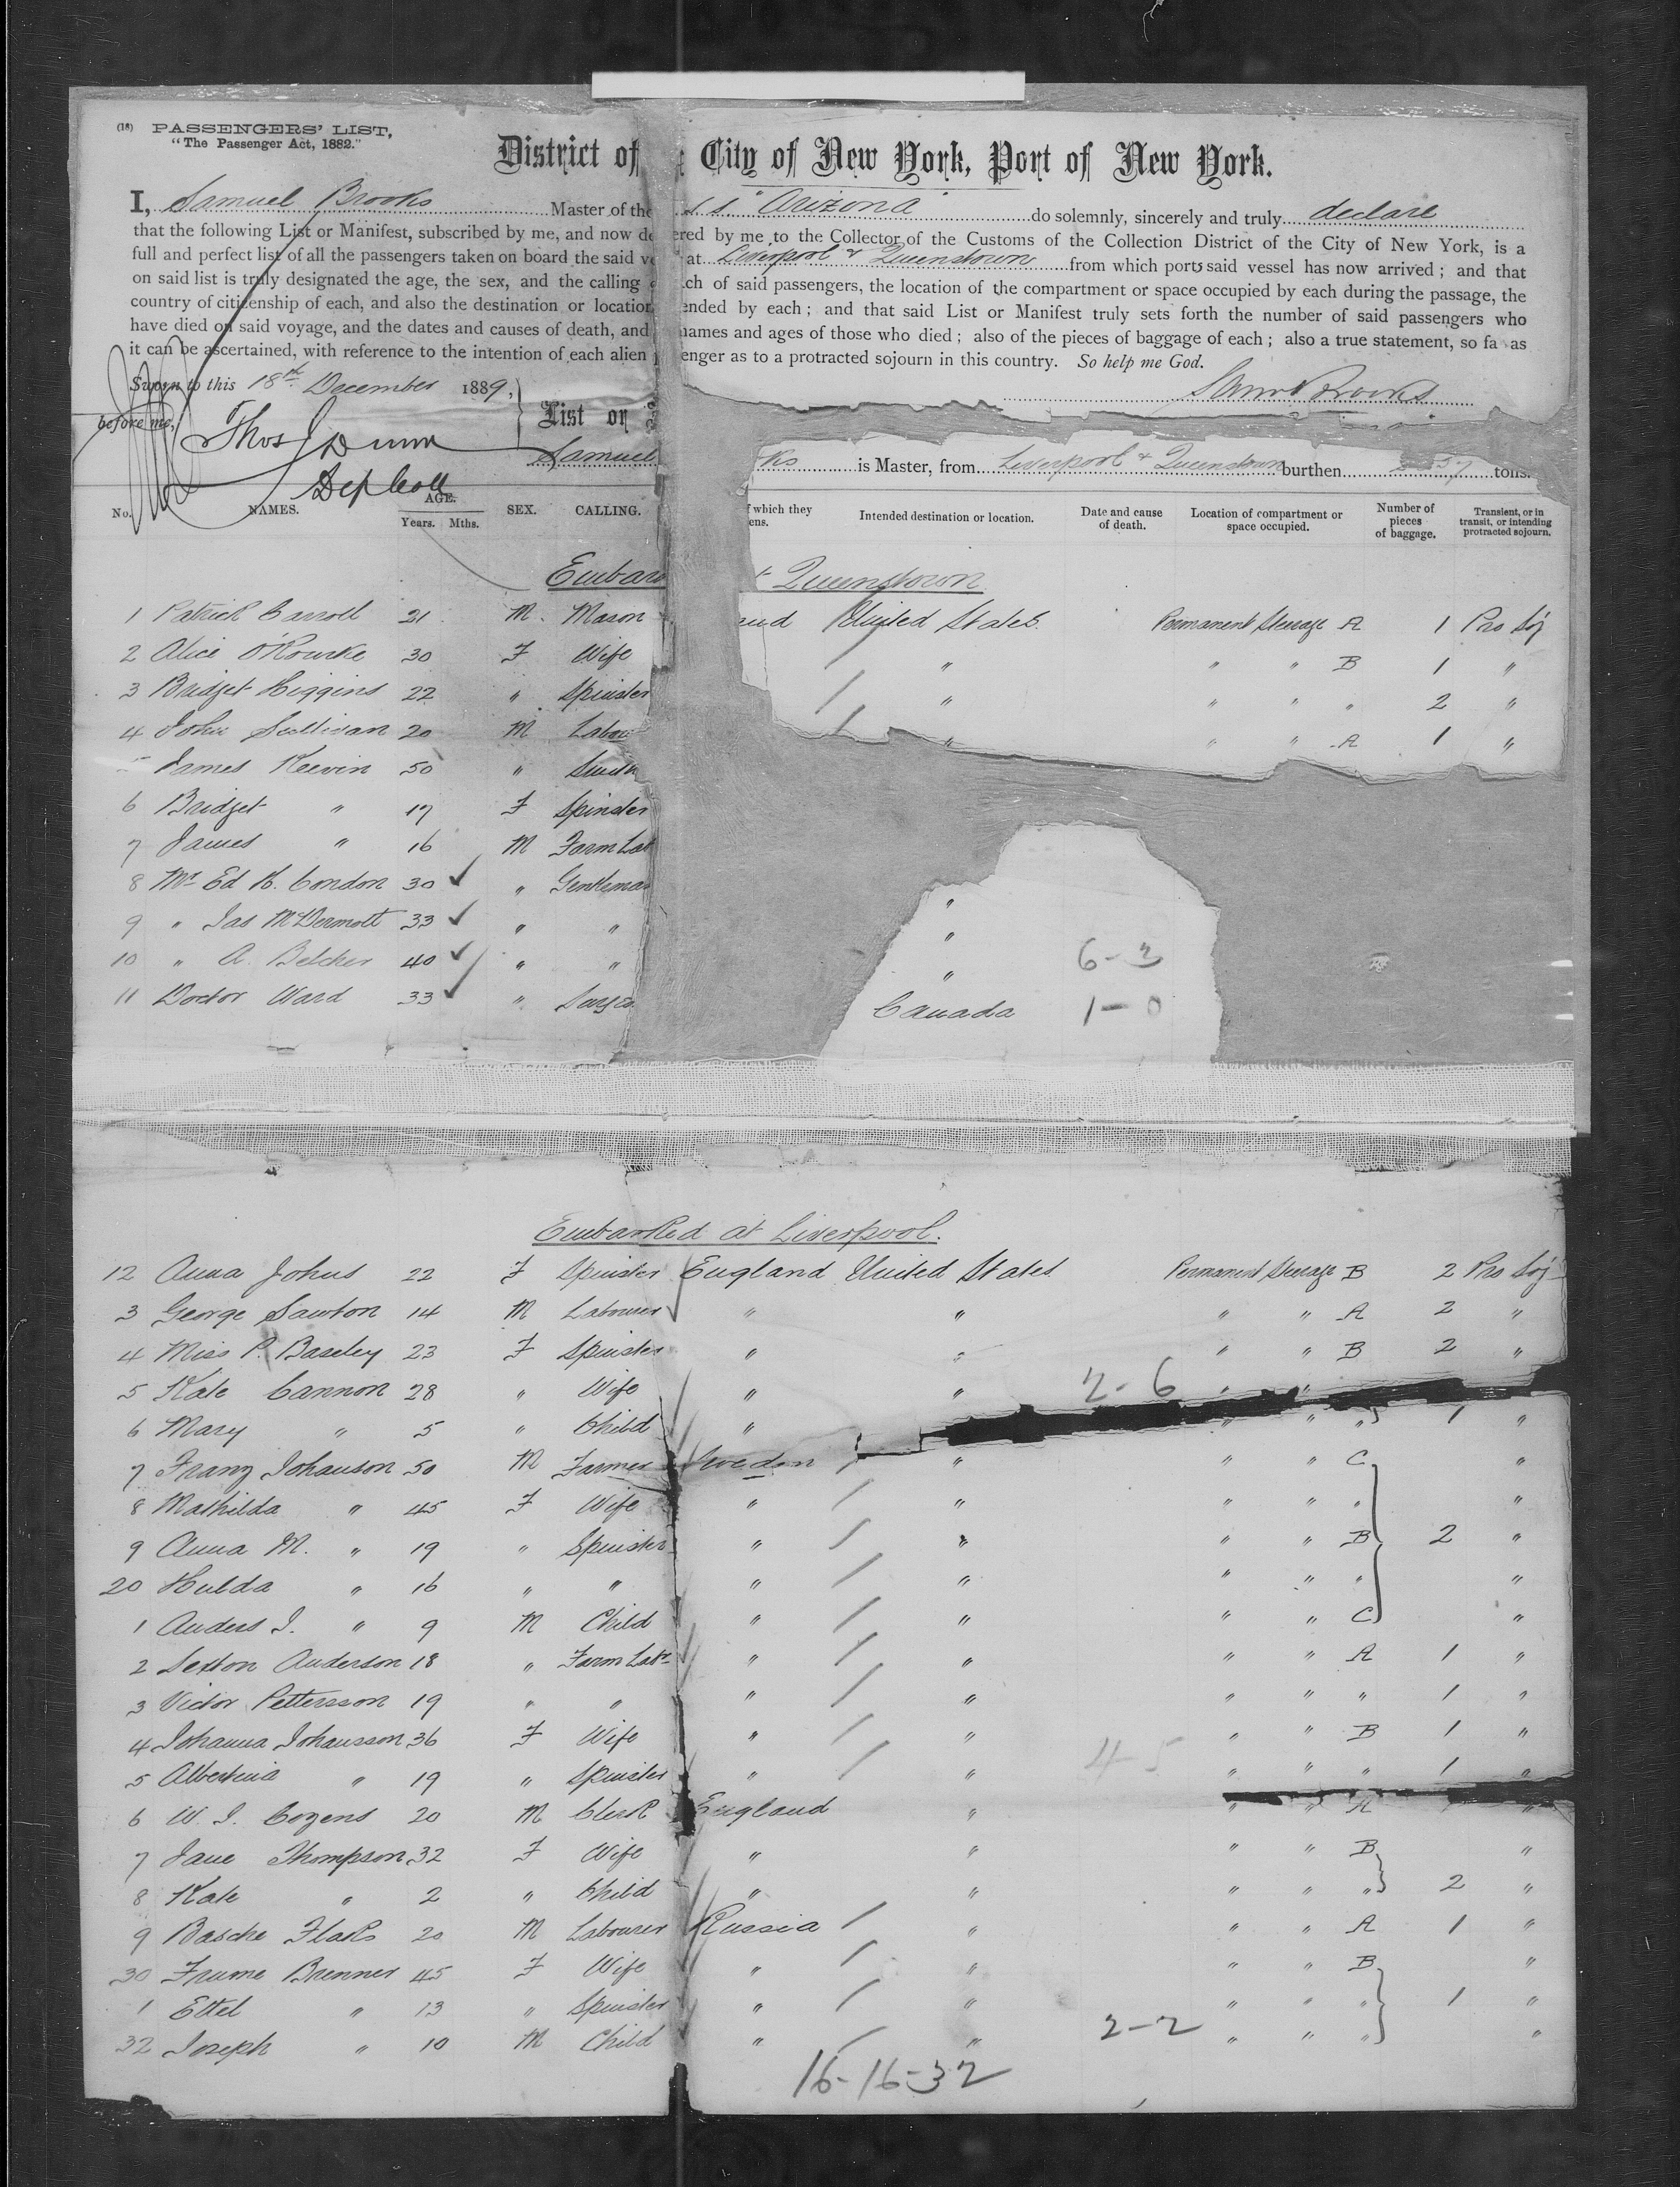 (18) PASSENGERS' LIST,
"The Passenger Act, 1882."
District of City of New York, Port of New York.
I, Samuel Brooks Master of the S S "Arizona do solemnly, sincerely and truly declare
that the following List or Manifest, subscribed by me, and now de ered by me to the Collector of the Customs of the Collection District of the City of New York, is a
full and perfect list of all the passengers taken on board the said ve at Liverpool & Queenstown from which ports said vessel has now arrived; and that
on said list is truly designated the age, the sex, and the calling ch of said passengers, the location of the compartment or space occupied by each during the passage, the
country of citizenship of each, and also the destination or location ended by each; and that said List or Manifest truly sets forth the number of said passengers who
have died on said voyage, and the dates and causes of death, and names and ages of those who died; also of the pieces of baggage of each; also a true statement, so fa as
it can be ascertained, with reference to the intention of each alien enger as to a protracted sojourn in this country. So help me God.
Sworn to this 18th December 1889, Saml Brooks
before me, Thos J Dunn List or
Dep Coll Samuel ks is Master, from Liverpool & Queenstown burthen tons.
No. NAMES. AGE. Years. Mths. SEX. CALLING. f which they ens. Intended destination or location. Date and cause of death. Location of compartment or space occupied. Number of pieces of baggage. Transient, or in transit, or intending protracted sojourn.
Embar t Queenstown
1 Patrick Carroll 21 M. Mason and United States Permanent Steerage A 1 Pro Soj
2 Alice O'Rourke 30 F Wife " " " B 1 "
3 Bridget Higgins 22 " Spinster " " " " 2 "
4 John Sullivan 20 M Labou " " " A 1 "
5 James Keevin 50 " Smith
6 Bridget " 17 F Spinster
7 James " 16 M Farm Lab
8 Mr Ed K. Condon 30 " Gentleman "
9 " Jas McDermott 33 " " "
10 " A. Belcher 40 " " " 6-3
11 Doctor Ward 33 " Surgeo Canada 1-0
Embarked at Liverpool.
12 Anna Johns 22 F Spinster England United States Permanent Steerage B 2 Pro Soj
3 George Sawton 14 M Labourer " " " " A 2 "
4 Miss P. Baseley 23 F Spinster " " " " B 2 "
5 Kate Cannon 28 " Wife " " 2-6 " "
6 Mary " 5 " Child " " " " 1 "
7 Franz Johanson 50 M Farmer Sweden " " " C "
8 Mathilda " 45 F Wife " " " " " "
9 Anna M. " 19 " Spinster " " " " B 2 "
20 Hulda " 16 " " " " " " " "
1 Anders J. " 9 M Child " " " " C "
2 Sexton Anderson 18 " Farm Labr " " " " A 1 "
3 Victor Pettersson 19 " " " " " " " 1 "
4 Johanna Johansson 36 F Wife " " " " B 1 "
5 Albertina " 19 " Spinster " " 4-5 " " " 1 "
6 W. J. Cozens 20 M Clerk England " " " A "
7 Jane Thompson 32 F Wife " " " " B "
8 Kate " 2 " Child " " " " " 2 "
9 Basche Flaks 20 M Labourer Russia " " " A 1 "
30 Frume Brenner 45 F Wife " " " " B "
1 Ettel " 13 " Spinster " " " " " 1 "
32 Joseph " 10 M Child " " 2-2 " " " "
16-16-32